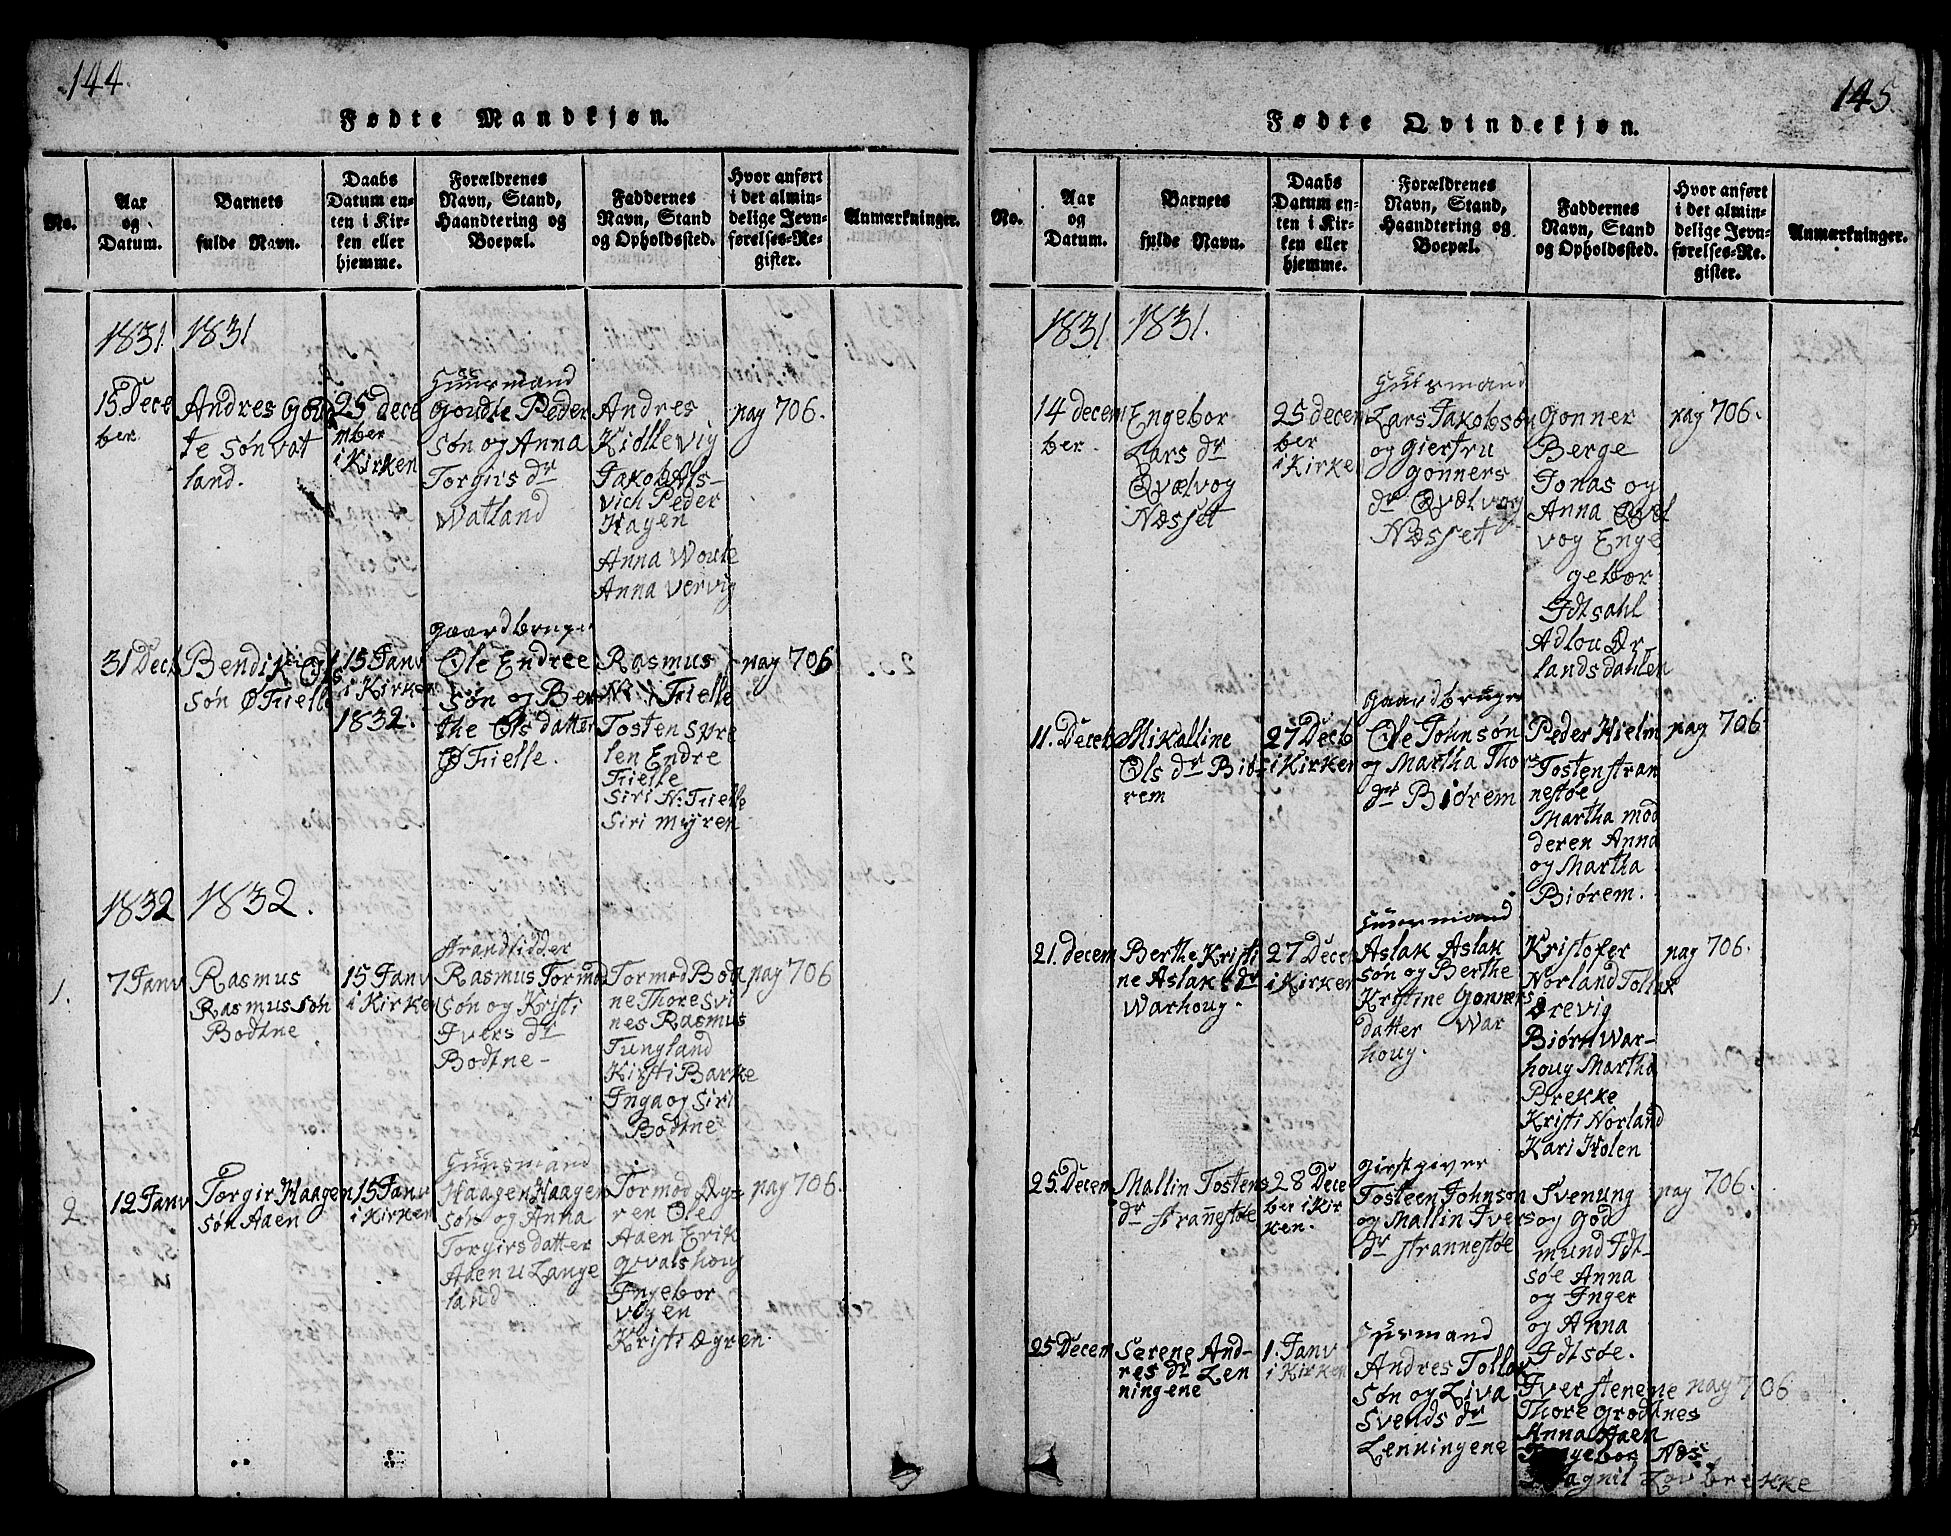 144.
Fødte Mandkjøn.
No.
Aar
og
Datum.
Barnets
fulde Navn.
Daabs
Datum en-
ten i Kir-
ken eller
hjemme.
Forældrenes
Navn, Stand,
Haandtering og
Boepæl.
Faddernes
Navn, Stand
og Opholdssted.
Hvor anført
i det almin-
delige Jevn-
førelses-Re-
gister.
Anmærkninger.
1831.
1831
15 Dece
ber.
Andres Goud
te søn vat
land.
25 dece
mber
i Kirken
Huusmand
Goudte Peder
søn og Anna
Torgirs dr
Watland
Andres
Kidllevig
Jakob Als-
vich Peder
Hagen
Anna Woule
Anna vervig
pag 706.
31 Dect
Bendik Ols
søn Ø Fielle
15 Janv
i Kirken
1832.
gaardbruger
Ole Endree
søn og Ber
the Ols datter
Ø Fielle.
Rasmus
N: Fielle
Tosten spre
len Endre
Fielle
Siri N: Fielle
Siri Myren
pag 706
1832
1832.
1.
7 Janv
Rasmus
Rasmus søn
Bodtne
15 Janv
i Kirken
strandsidder
Rasmus Tormod
søn og Kristi
Ivers dr
Bodtne-
Tormod Bodt
ne Thore Svi
nes Rasmus
Tungland
Kirsti Barke
Inga og Siri
Bodtne
pag 706
2.
12 Janv
Torgir Haagen
søn Aaen
15 Janv
i Kirken
Huusmand
Haagen Haagen
søn og Anna
Torgirsdatter
Aaen u Lange
land
Tormod Øy
ren Ole
Aaen Erik
qvalshoug
Ingebor
vogen
Kristi Øyren.
pag 706.
145.
Fødte Qvindekjøn.
No.
Aar
og
Datum.
Barnets
fulde Navn.
Daabs
Datum en-
ten i Kir-
ken eller
hjemme.
Forældrenes
Navn, Stand,
Haandtering og
Boepæl.
Faddernes
Navn, Stand
og Opholdssted.
Hvor anført
i det almin-
delige Jevn-
førelses-Re-
gister.
Anmærkninger.
1831
1831.
14 decem
ber.
Engebor
Lars dr
Qvælvog
Næsset
25 decem
ber
i Kirke
Huusmand
Lars Jakobsøn
og Giertru
Gonners
dr Qvælvog
Næsset
Gonner
Berge
Jonas og
Anna Qvel
vog Enge
gebor
Idtsahl
Adlou Ør
landsdahlen
pag 706.
11. Deceb
Mikalline
Ols dr Biø
rem
27 Decb
i Kirken
Gaardbruger
Ole Johnsøn
og Martha Thors
dr Biørem
Peder Hielm
Tosten stran
nestøe
Martha mod
deren Anna
og Martha
Biørem.
pag 706
21. decem
Berthe Kristi
ne Aslak dr
Warhoug.
27 Decet
i Kirken
Huusmand
Aslak Aslak
søn og Berthe
Kristine Gonners
datter War
houg.
Kristofer
Norland Tollak
Brevig
Biørn War-
houg Martha
Brekke
Kristi Norland
Kari Holen
pag 706.
25. Decem
Mallin Tostens
dr strannestøe
28 Dece
ber i Kir
ken.
Giestgiver
Tosteen Johnson
og Mallin Ivers
dr strannestøe
Svenung
og God
mund Idt-
søe Anna
og Inger
og Anna
Idtsøe.
pag 706.
25 Decem
Serene And-
res dr Len
ningene
1. Janv
i Kirken
Huusmand
Andres Tollav
søn og Liva
Svends dr
Lenningene
Iver stenene
Thore Grodtnes
Anna Aaen
Ingebor Næs
Magnil Lovbrekke
pag 706